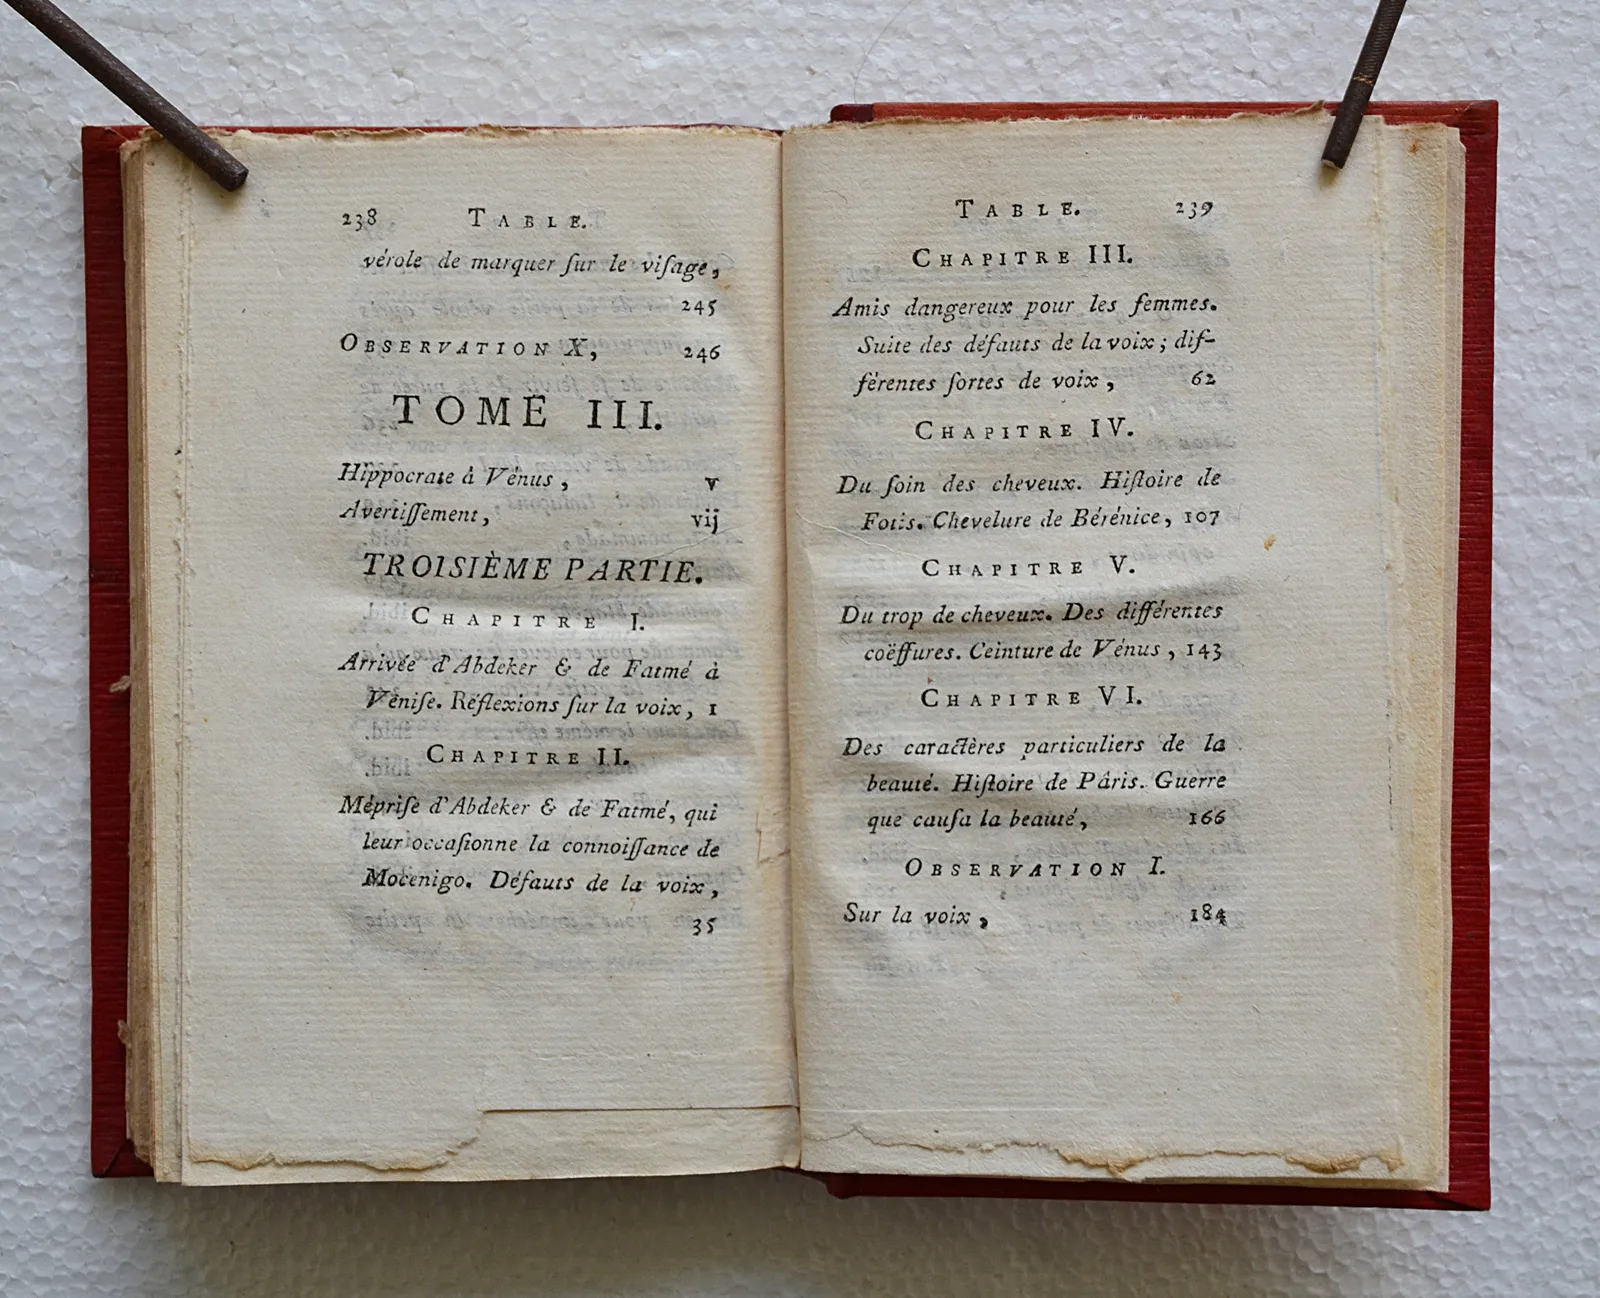 238 TABLE.
vérole de marquer ſur le viſage,
245
OBSERVATION X, 246
TOME III.
Hippocrate à Vénus, v
Avertiſſement, vij
TROISIÈME PARTIE.
CHAPITRE I.
Arrivée d'Abdeker & de Fatmé à
Veniſe. Réflexions ſur la voix, 1
CHAPITRE II.
Mépriſe d'Abdeker & de Fatmé, qui
leur occaſionne la connoiſſance de
Mocenigo. Défauts de la voix,
35
TABLE. 239
CHAPITRE III.
Amis dangereux pour les femmes.
Suite des défauts de la voix; dif-
férentes ſortes de voix, 62
CHAPITRE IV.
Du ſoin des cheveux. Hiſtoire de
Fotis. Chevelure de Bérénice, 107
CHAPITRE V.
Du trop de cheveux. Des différentes
coëffures. Ceinture de Vénus, 143
CHAPITRE VI.
Des caractères particuliers de la
beauté. Hiſtoire de Pâris. Guerre
que cauſa la beauté, 166
OBSERVATION I.
Sur la voix, 184